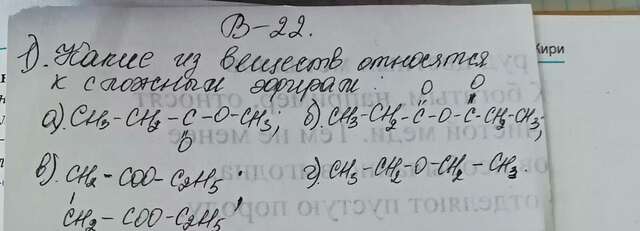 В-22.
1). Какие из веществ относятся
к сложным эфирам:
а). CH3-CH2-C-O-CH3; б). CH3-CH2-C-O-C-CH2-CH3;
O O O
в). CH2-COO-C2H5. г). CH3-CH2-O-CH2-CH3.
CH2-COO-C2H5
Кири